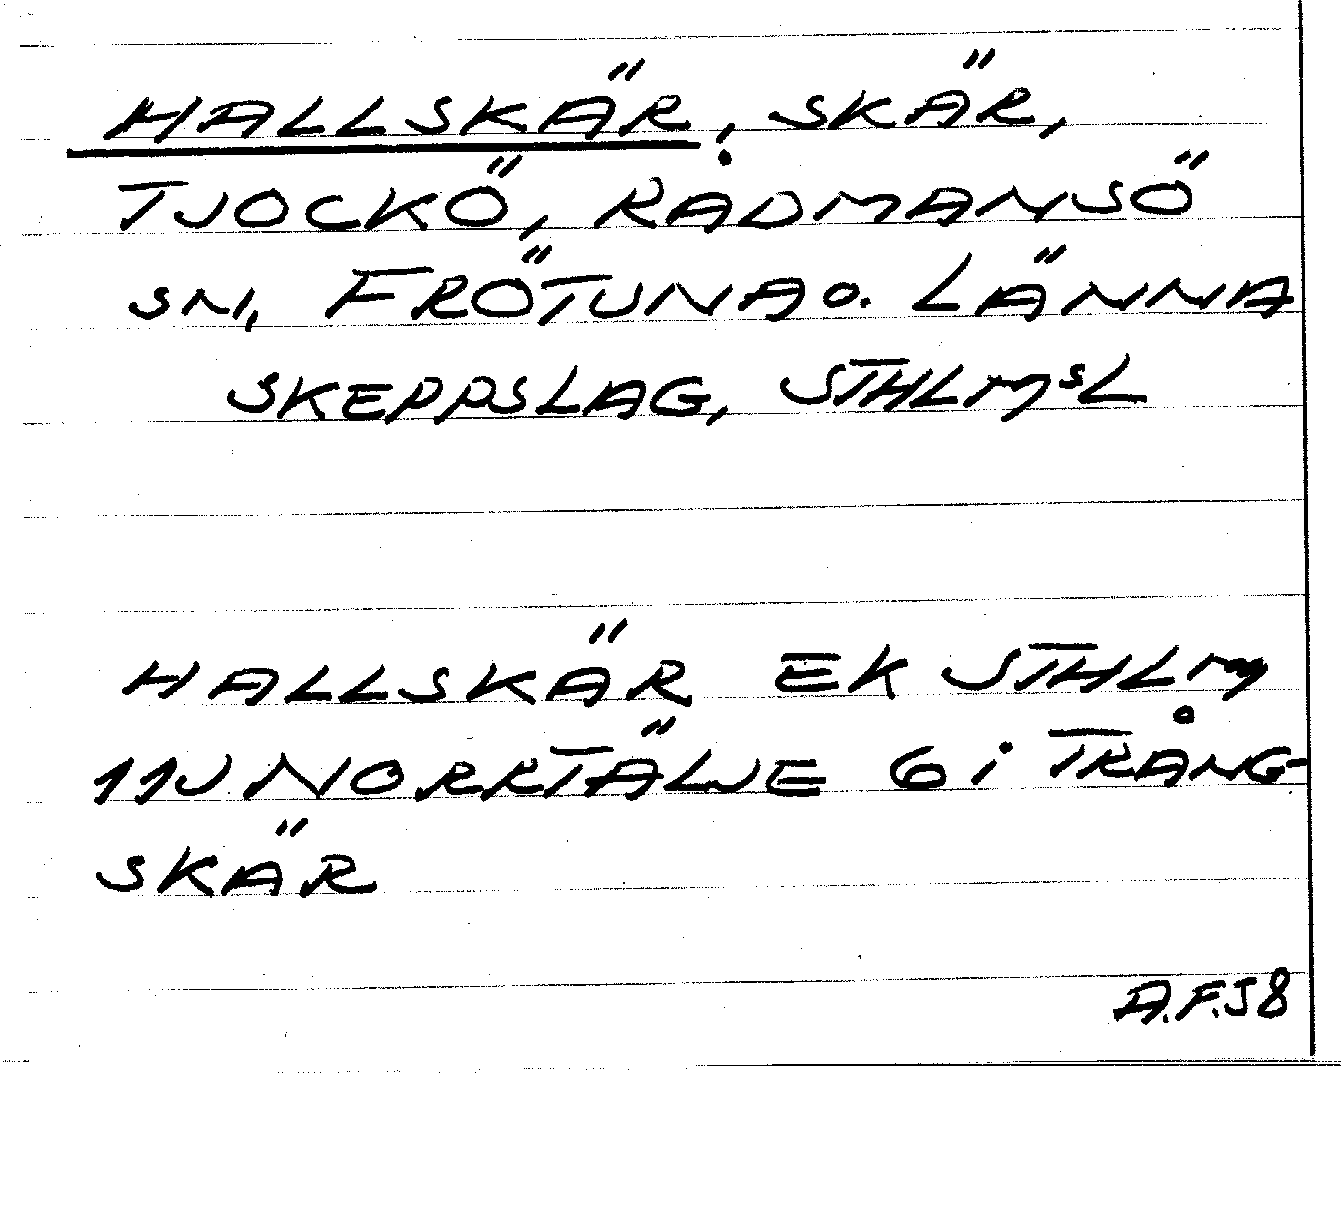 HALLSKÄR, SKÄR,
TJOCKÖ, RÅDMANSÖ
SN, FRÖTUNA O. LÄNNA
SKEPPSLAG, STHLMSL
HALLSKÄR EK STHLM
11J NORRTÄLJE 6 i TRÅNG-
SKÄR
A.F.58